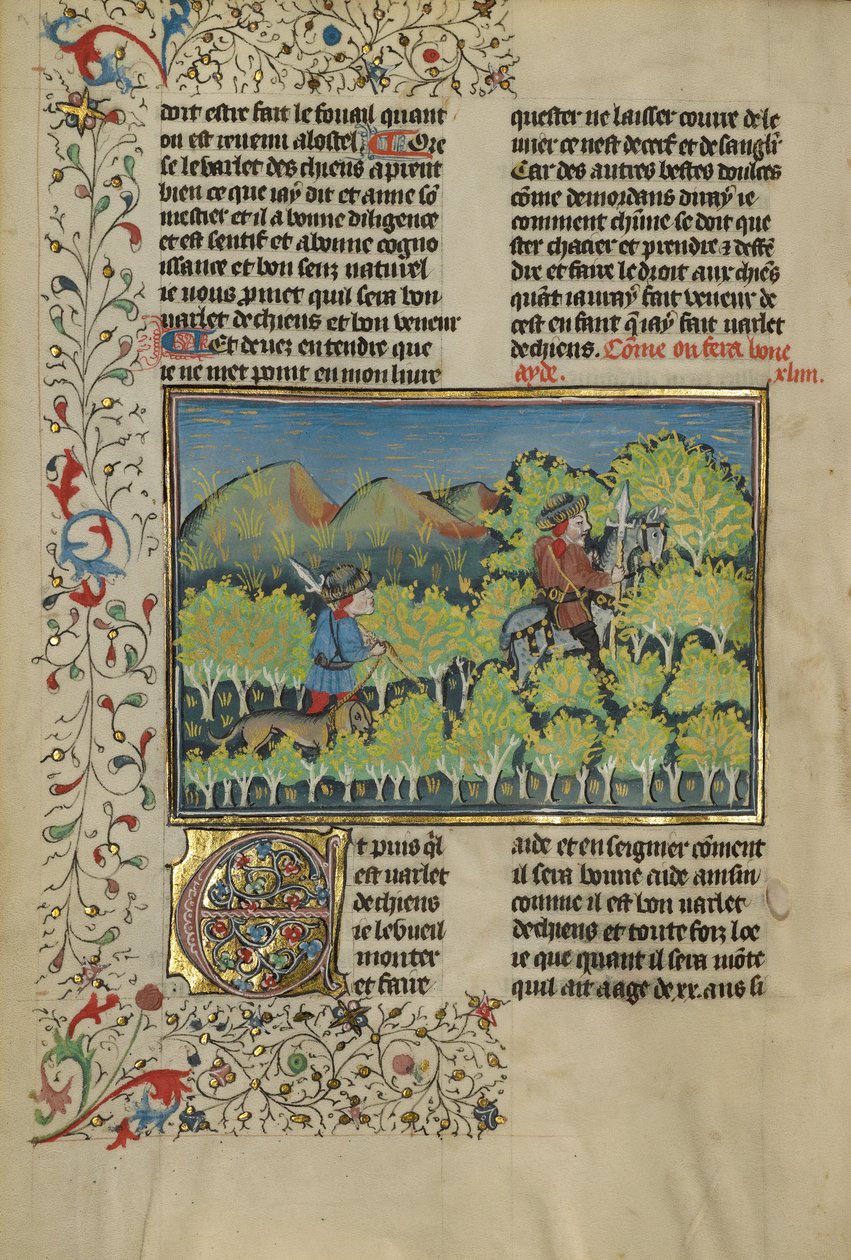 doit estre fait le fouail quant
on est reuenu a lostel. Ore
se le varlet des chiens aprent
bien ce que iay dit et aime sõ
mestier et il a bonne diligence
et est sentif et a bonne cogno
issance et bon senz naturel
ie uous pmet quil sera bon
uarlet de chiens et bon veneur
Et deuez entendre que
ie ne met point en mon liure
quester ne laisser courre de le
urier ce nest de cerf et de sanglier
Car des autres bestes doulces
cõme de mordans diray ie
comment chũne se doit que
ster chacier et prendre z deffẽ
dre et faire le droit aux chiẽs
quãt iauray fait veneur de
cest enfant q̃ iay fait uarlet
de chiens. Cõme on fera bone
ayde. xliiii.
Et puis ql
est uarlet
de chiens
ie le vueil
monter
et faire
aide et enseignier cõment
il sera bonne aide ainsin
comme il est bon uarlet
de chiens et toute foiz loe
ie que quant il sera mõte
quil ait aage de .xx. ans si